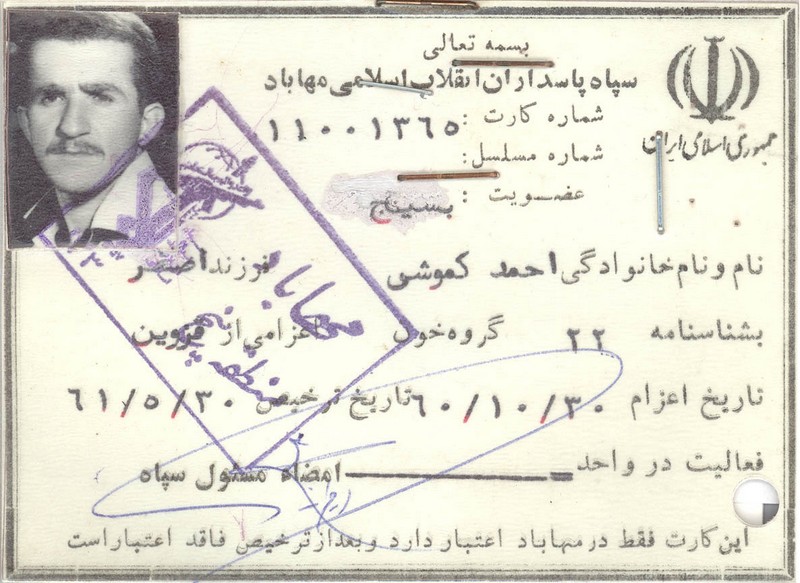 بسمه تعالی
سپاه پاسداران انقلاب اسلامی مهاباد
جمهوری اسلامی ایران
شماره کارت : ۱۱۰۰۱۳۶۵
شماره مسلسل:
عضویت : بسیج
نام و نام خانوادگی احمد کموشی فرزند اصغر
بشناسنامه ۲۲ گروه خون اعزامی از قزوین
تاریخ اعزام ۶۰/۱۰/۳۰ تاریخ ترخیص ۶۱/۵/۳۰
فعالیت در واحد امضاء مسئول سپاه
این کارت فقط در مهاباد اعتبار دارد و بعد از ترخیص فاقد اعتبار است
مهاباد